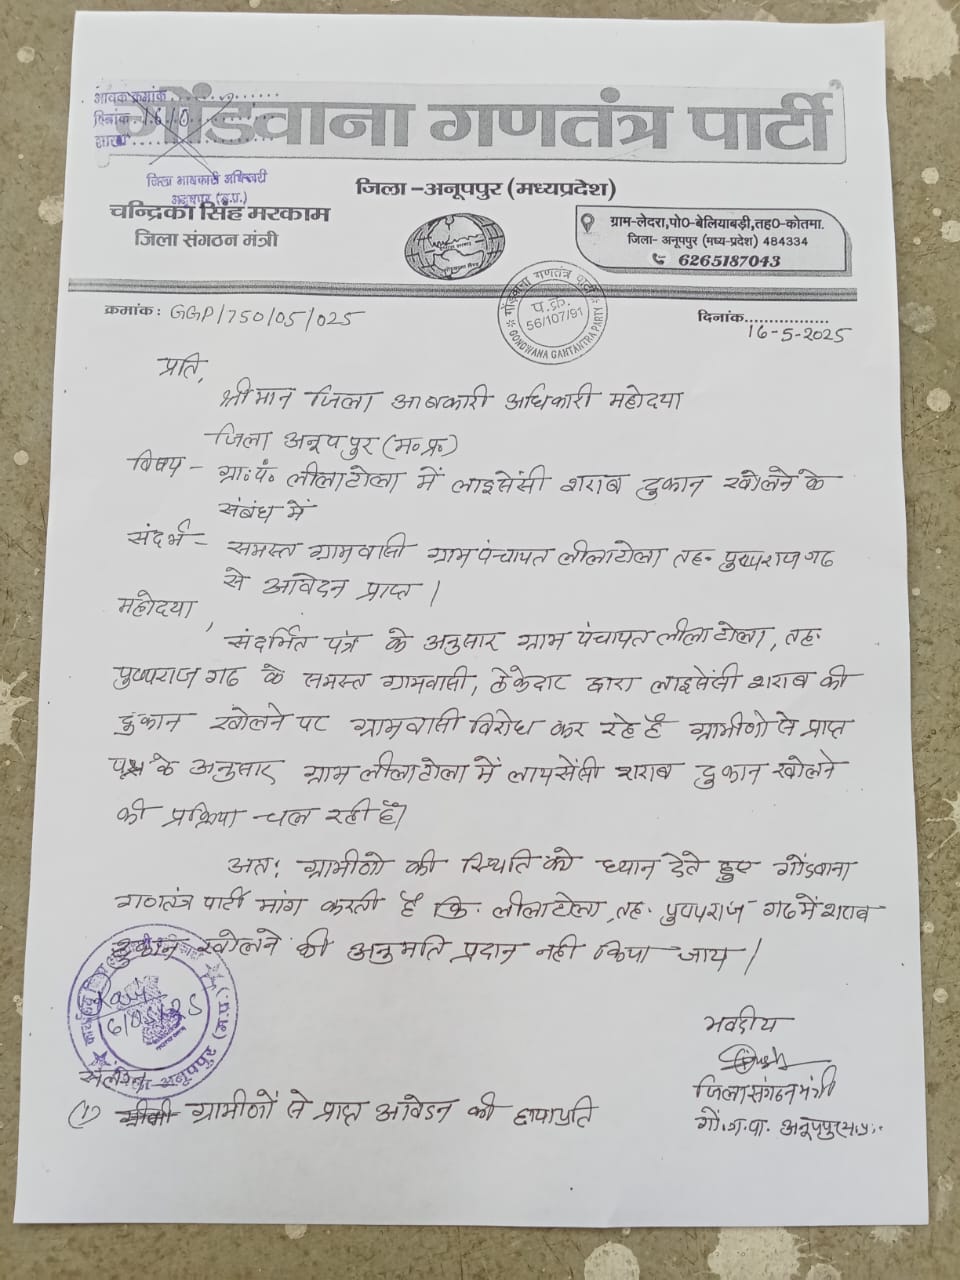 आवक क्रमांक
दिनांक
शाखा
जिला आबकारी अधिकारी
अनूपपुर (म.प्र.)
गोंडवाना गणतंत्र पार्टी
जिला -अनूपपुर (मध्यप्रदेश)
चन्द्रिका सिंह मरकाम
जिला संगठन मंत्री
ग्राम-लेदरा,पो0-बेलियाबड़ी,तह0-कोतमा.
जिला- अनूपपुर (मध्य-प्रदेश) 484334
6265187043
गोंडवाना गणतंत्र पार्टी
प. क्रं.
56/107/91
GONDWANA GANTANTRA PARTY
क्रमांक : GGP/750/05/025
दिनांक................
16-5-2025
प्रति,
श्रीमान जिला आबकारी अधिकारी महोदया
जिला अनूपपुर (म॰प्र॰)
विषय - ग्रा॰पं॰ लीलाटोला में लाइसेंसी शराब दुकान खोलने के
संबंध में
संदर्भ - समस्त ग्रामवासी ग्राम पंचायत लीलाटोला तह॰ पुष्पराजगढ
से आवेदन प्राप्त।
महोदया,
संदर्भित पत्र के अनुसार ग्राम पंचायत लीलाटोला, तह॰
पुष्पराजगढ के समस्त ग्रामवासी, ठेकेदार द्वारा लाइसेंसी शराब की
दुकान खोलने पर ग्रामवासी विरोध कर रहे है ग्रामीणो से प्राप्त
पत्र के अनुसार ग्राम लीलाटोला में लायसेंसी शराब दुकान खोलने
की प्रक्रिया चल रही है।
अतः ग्रामीणो की स्थिति को ध्यान देते हुए गोंडवाना
गणतंत्र पार्टी मांग करती है कि लीलाटोला, तह॰ पुष्पराज गढ में शराब
दुकान खोलने की अनुमति प्रदान नही किया जाय।
भवदीय
जिला संगठन मंत्री
गों.ग.पा. अनूपपुर म.प्र.
अनूपपुर (म.प्र.)
संलग्न
(1) ग्रामीणों से प्राप्त आवेदन की छायाप्रति